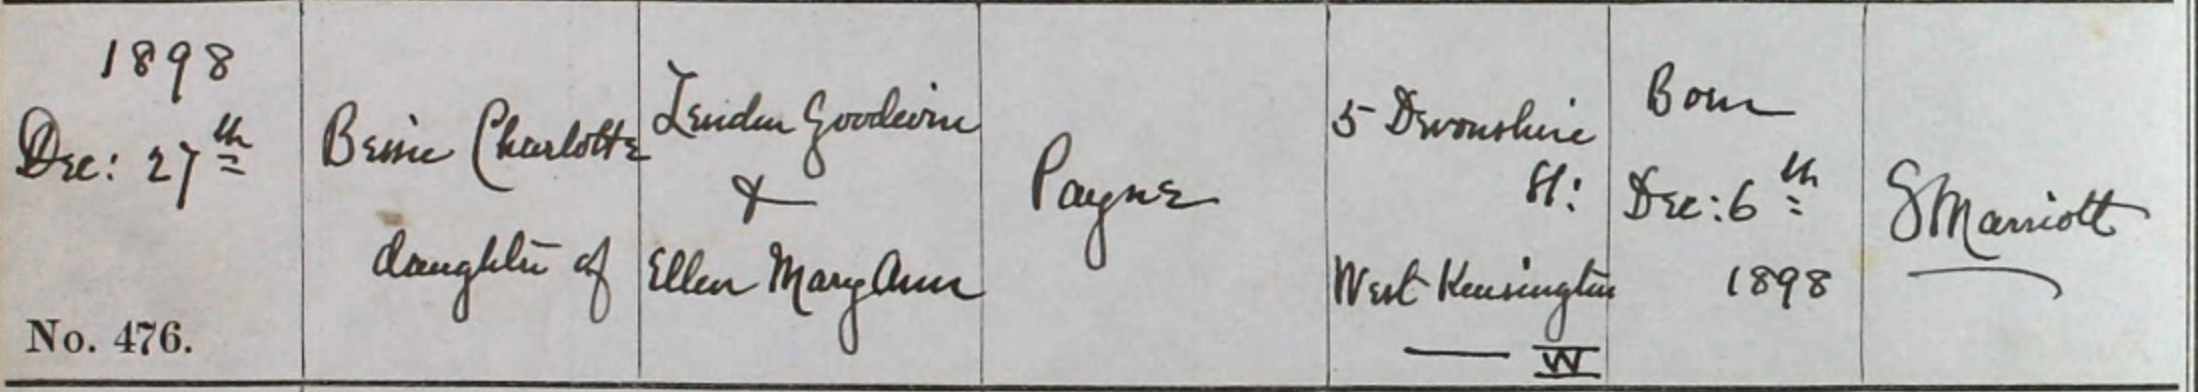 1898
Dec: 27th
No. 476.
Bessie Charlotte
daughter of
Goodwin
&
Ellen Mary Ann
Payne
5 Devonshire
St:
West Kensington
W
Born
Dec: 6th
1898
S Marriott